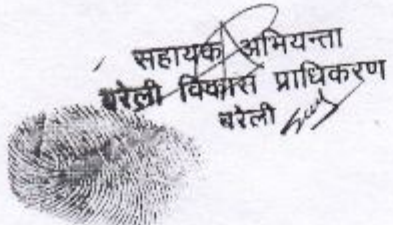 सहायक अभियन्ता
बरेली विकास प्राधिकरण
बरेली